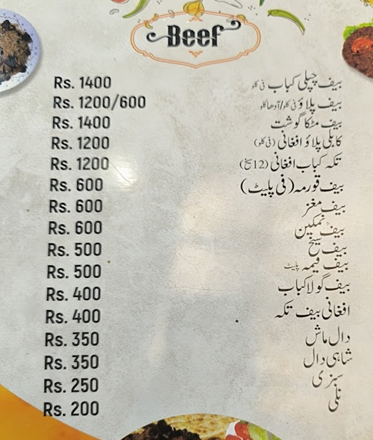 Beef
Rs. 1400 بیف چپلی کباب فی کلو
Rs. 1200/600 بیف پلاؤ فی کلو/آدھا کلو
Rs. 1400 بیف مٹکا گوشت
Rs. 1200 کابلی پلاؤ افغانی (فی کلو)
Rs. 1200 تکہ کباب افغانی (12 سیخ)
Rs. 600 بیف قورمہ (فی پلیٹ)
Rs. 600 بیف مغز
Rs. 600 بیف نمکین
Rs. 500 بیف سیخ
Rs. 500 بیف قیمہ پلیٹ
Rs. 400 بیف گولا کباب
Rs. 400 افغانی بیف تکہ
Rs. 350 دال ماش
Rs. 350 شاہی دال
Rs. 250 سبزی
Rs. 200 نلی